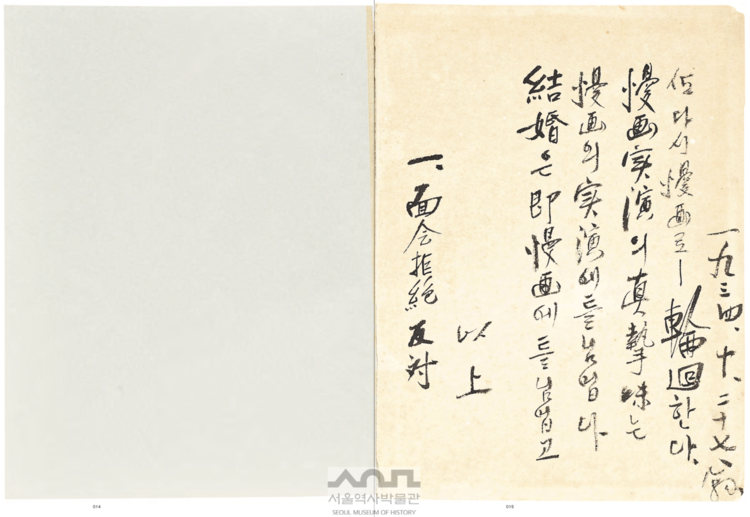 一、面会拒絶反対
以上
結婚은即慢画에틀님업고
慢画의実演에틀님업다
慢画実演의真摯味는
ᄯᅩ다시慢画로ー輪廻한다.
一九三四、十、二十七、
014
015
서울역사박물관
SEOUL MUSEUM OF HISTORY